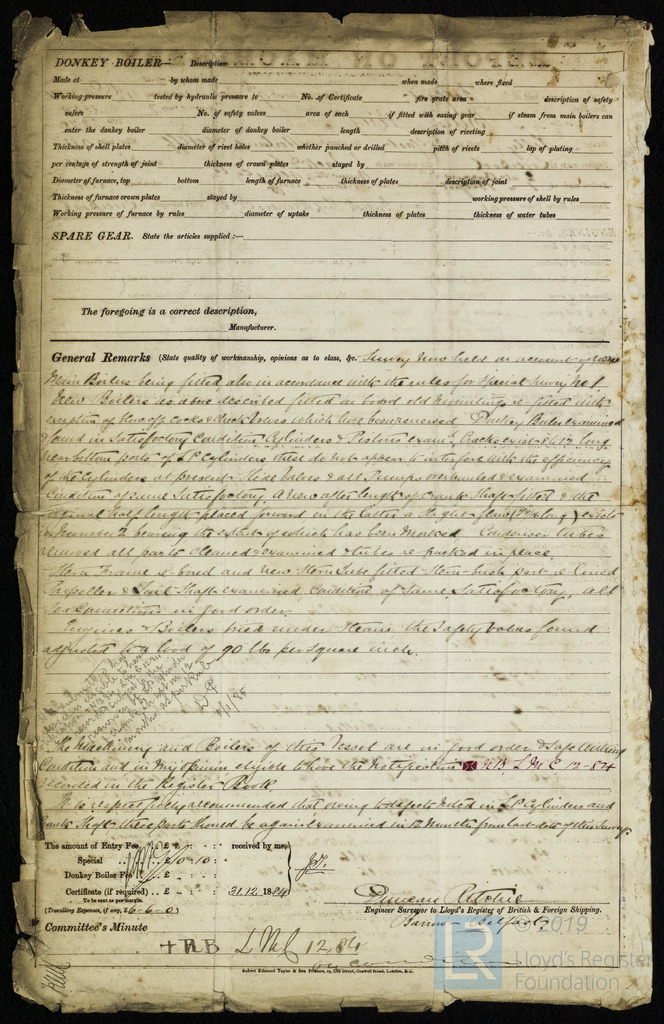 DONKEY BOILER— Description
Made at by whom made when made where fixed
Working pressure tested by hydraulic pressure to No. of Certificate fire grate area description of safety
valves No. of safety valves area of each if fitted with easing gear if steam from main boilers can
enter the donkey boiler diameter of donkey boiler length description of riveting
Thickness of shell plates diameter of rivet holes whether punched or drilled pitch of rivets lap of plating
per centage of strength of joint thickness of crown plates stayed by
Diameter of furnace, top bottom length of furnace thickness of plates description of joint
Thickness of furnace crown plates stayed by working pressure of shell by rules
Working pressure of furnace by rules diameter of uptake thickness of plates thickness of water tubes
SPARE GEAR. State the articles supplied:—
The foregoing is a correct description,
Manufacturer.
General Remarks (State quality of workmanship, opinions as to class, &c. Survey now held on account of new
Main Boilers being fitted also in accordance with the rules for Special Survey No 1.
New Boilers as above described fitted on board old mountings re-fitted with
exception of blow off cocks & check valves which have been renewed Donkey Boiler examined
& found in Satisfactory Condition Cylinders & Pistons exam^d Cracks exist long
near bottom ports of L P Cylinders these do not appear to interfere with the efficiency
of the Cylinders at present Slide Valves & all Pumps overhauled & examined
Condition of same Satisfactory A new after length of Crank Shaft fitted & the
half length placed forward in the latter a slight flaw long) exists
in Number 2 bearing the extent of which has been marked Condenser tubes
removed all parts cleaned & examined & tubes re-packed in place.
Stern Frame re-bored and new Stern Tube fitted Stern bush part re lined
Propeller & Tail Shaft examined Condition of Same Satisfactory, all
Sea Connections in good order.
Engines & Boilers tried under Steam the Safety Valves found
adjusted to a load of 90 lbs per square inch.
months as per Rule
D P
1/85
The Machinery and Boilers of this Vessel are in good order & Safe Working
Condition and in my opinion eligible to have the Notification NB LMC 12-84
recorded in the Register Book
It is respectfully recommended that owing to defects noted in L P Cylinders and
Crank Shaft these parts should be again examined in 12 months from last date of this Survey.
The amount of Entry Fee .. £ : : received by me,
Special .. .. £10 : 10 :
Donkey Boiler Fee .. £ : :
Certificate (if required) .. £ : : 31.12.1884
To be sent as per margin.
(Travelling Expenses, if any, £6-6-0)
Duncan Ritchie
Engineer Surveyor to Lloyd's Register of British & Foreign Shipping.
Barrow Belfast
Committee's Minute
+ NB LMC 12 84
Robert Edmund Taylor & Son Printers, 19, Old Street, Goswell Road, London, E.C.
© 2019
LR
Lloyd's Register
Foundation